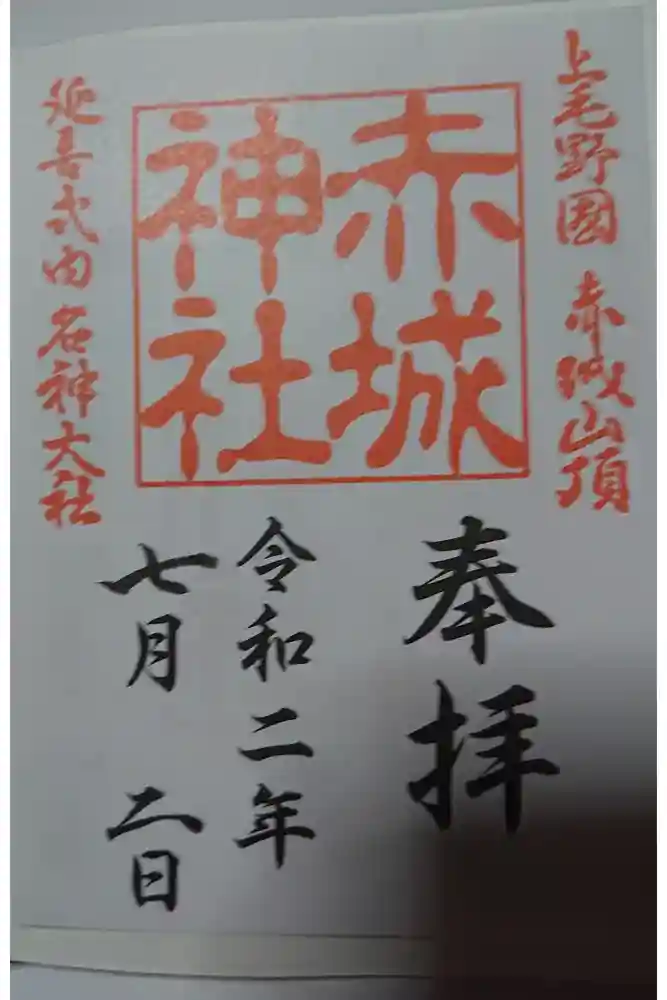 上毛野國 赤城山頂
赤城
神社
延喜式内名神大社
奉拝
令和二年
七月 二日